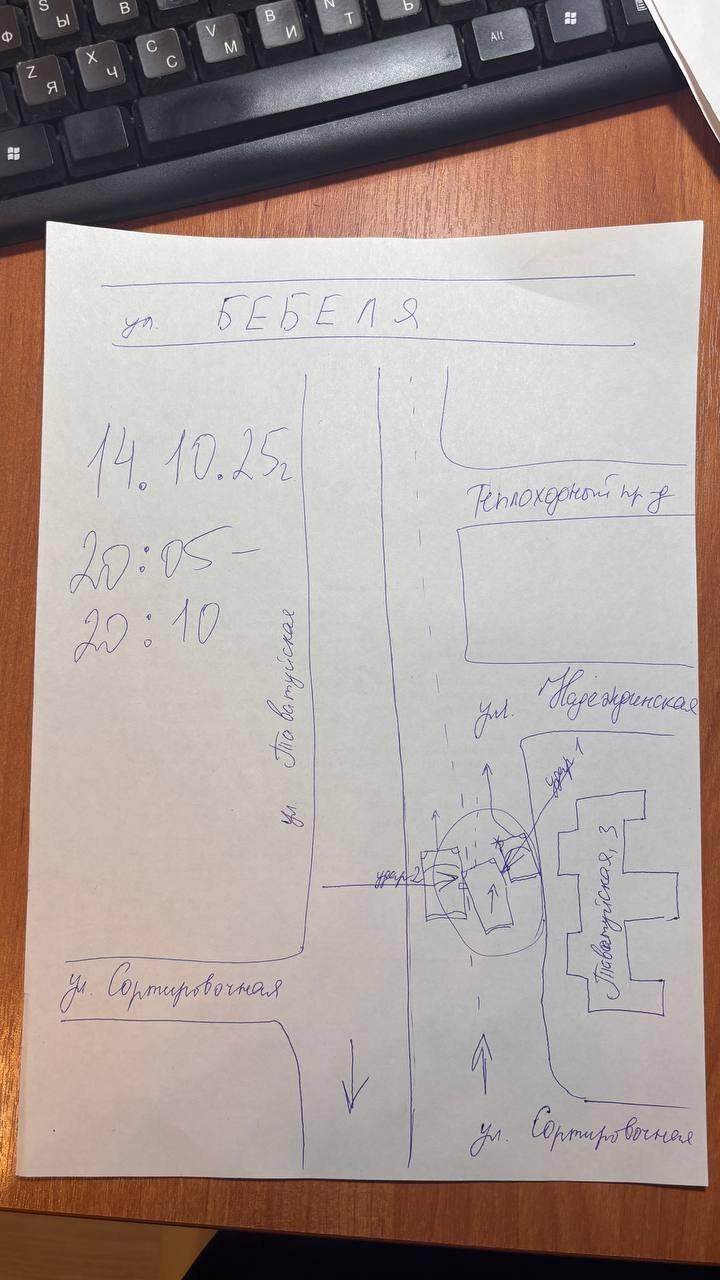 S Ы
В
Ф
Z Я
X Ч
C С
V М
B И
N Т
Ь
Alt
ул. БЕБЕЛЯ
14.10.25г
20:05-
20:10
Теплоходный пр-д
ул. Таватуйская
ул. Надеждинская
удар 1
удар 2
Таватуйская, 3
ул. Сортировочная
ул. Сортировочная